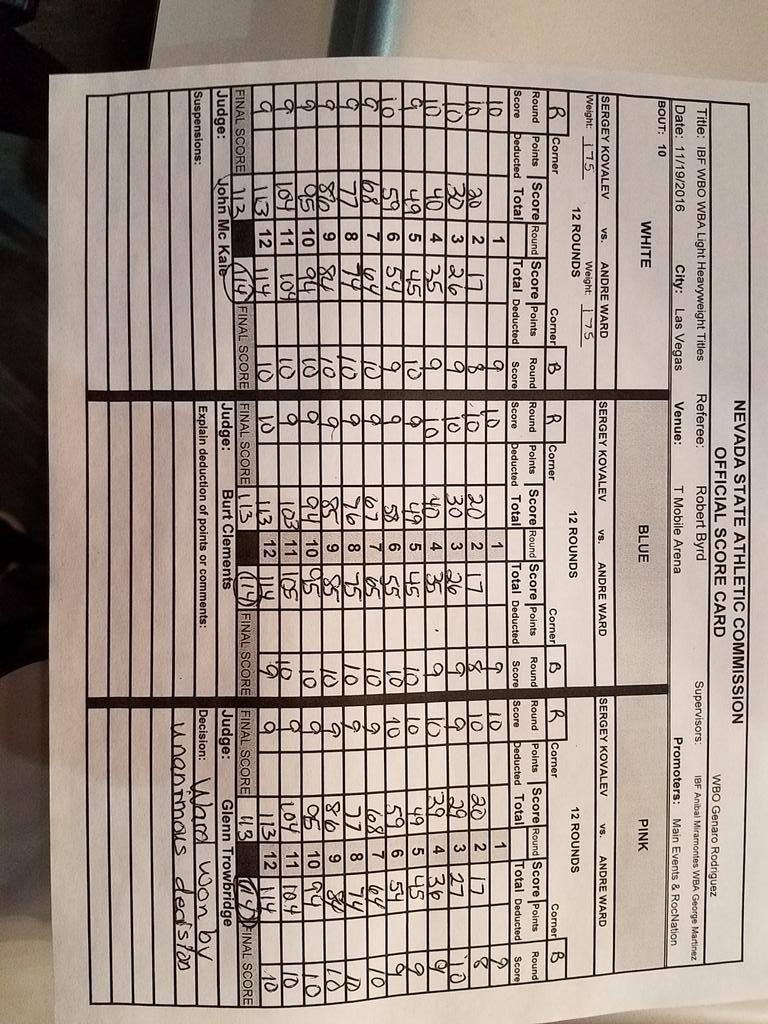 NEVADA STATE ATHLETIC COMMISSION
OFFICIAL SCORE CARD
WBO Genaro Rodriguez
Title: IBF WBO WBA Light Heavyweight Titles Referee: Robert Byrd Supervisors: IBF Anibal Miramontes WBA George Martinez
Date: 11/19/2016 City: Las Vegas Venue: T Mobile Arena Promoters: Main Events & RocNation
BOUT: 10
WHITE BLUE PINK
SERGEY KOVALEV vs. ANDRE WARD SERGEY KOVALEV vs. ANDRE WARD SERGEY KOVALEV vs. ANDRE WARD
Weight: 175 Weight: 175
12 ROUNDS 12 ROUNDS 12 ROUNDS
R Corner Corner B R Corner Corner B R Corner Corner B
Round Score Points Deducted Score Total Round Score Total Points Deducted Round Score Round Score Points Deducted Score Total Round Score Total Points Deducted Round Score Round Score Points Deducted Score Total Round Score Total Points Deducted Round Score
10 1 9 10 1 9 10 1 9
10 20 2 17 8 10 20 2 17 8 10 20 2 17 8
10 30 3 26 9 10 30 3 26 9 9 29 3 27 10
10 40 4 35 9 10 40 4 35 9 10 39 4 36 9
9 49 5 45 10 9 49 5 45 10 10 49 5 45 9
10 59 6 54 9 9 58 6 55 10 10 59 6 54 9
9 68 7 64 10 9 67 7 65 10 9 68 7 64 10
9 77 8 74 10 9 76 8 75 10 9 77 8 74 10
9 86 9 84 10 9 85 9 85 10 9 86 9 84 10
9 95 10 94 10 9 94 10 95 10 9 95 10 94 10
9 104 11 104 10 9 103 11 105 10 9 104 11 104 10
9 113 12 114 10 10 113 12 114 9 9 113 12 114 10
FINAL SCORE 113 114 FINAL SCORE FINAL SCORE 113 114 FINAL SCORE FINAL SCORE 113 114 FINAL SCORE
Judge: John Mc Kaie Judge: Burt Clements Judge: Glenn Trowbridge
Suspensions: Explain deduction of points or comments: Decision: Ward won by
unanimous decision